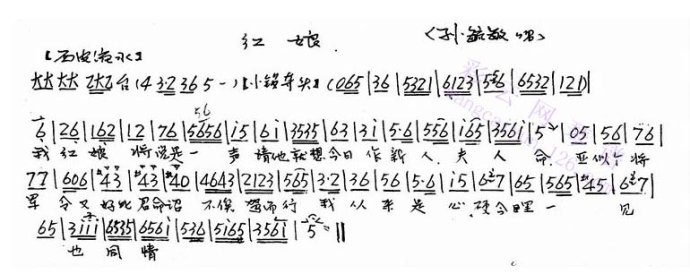 红娘 (孙毓敏唱)
【西皮流水】
大大 大大 乙大乙 台 (4 3·2 3 6 5 -) 【小锣夺头】 (065|36|5321|6123|5 6|6532|121)
6|26|162|12|76|5656|i5|6i|3535|63|3i|5·6|556|i65|356i|5|05|56|76|
我红娘将说是一声请他就想今日作新人夫人命亚似个将
77|606|43|43|40|4643|2123|565|3·2|36|56|5·6|i5|667|65|565|45|667|
军令又好比君命诏不俟驾而行我从来是心硬今日里一见
65|3iii|6535|656i|536|5165|356i|5||
也同情